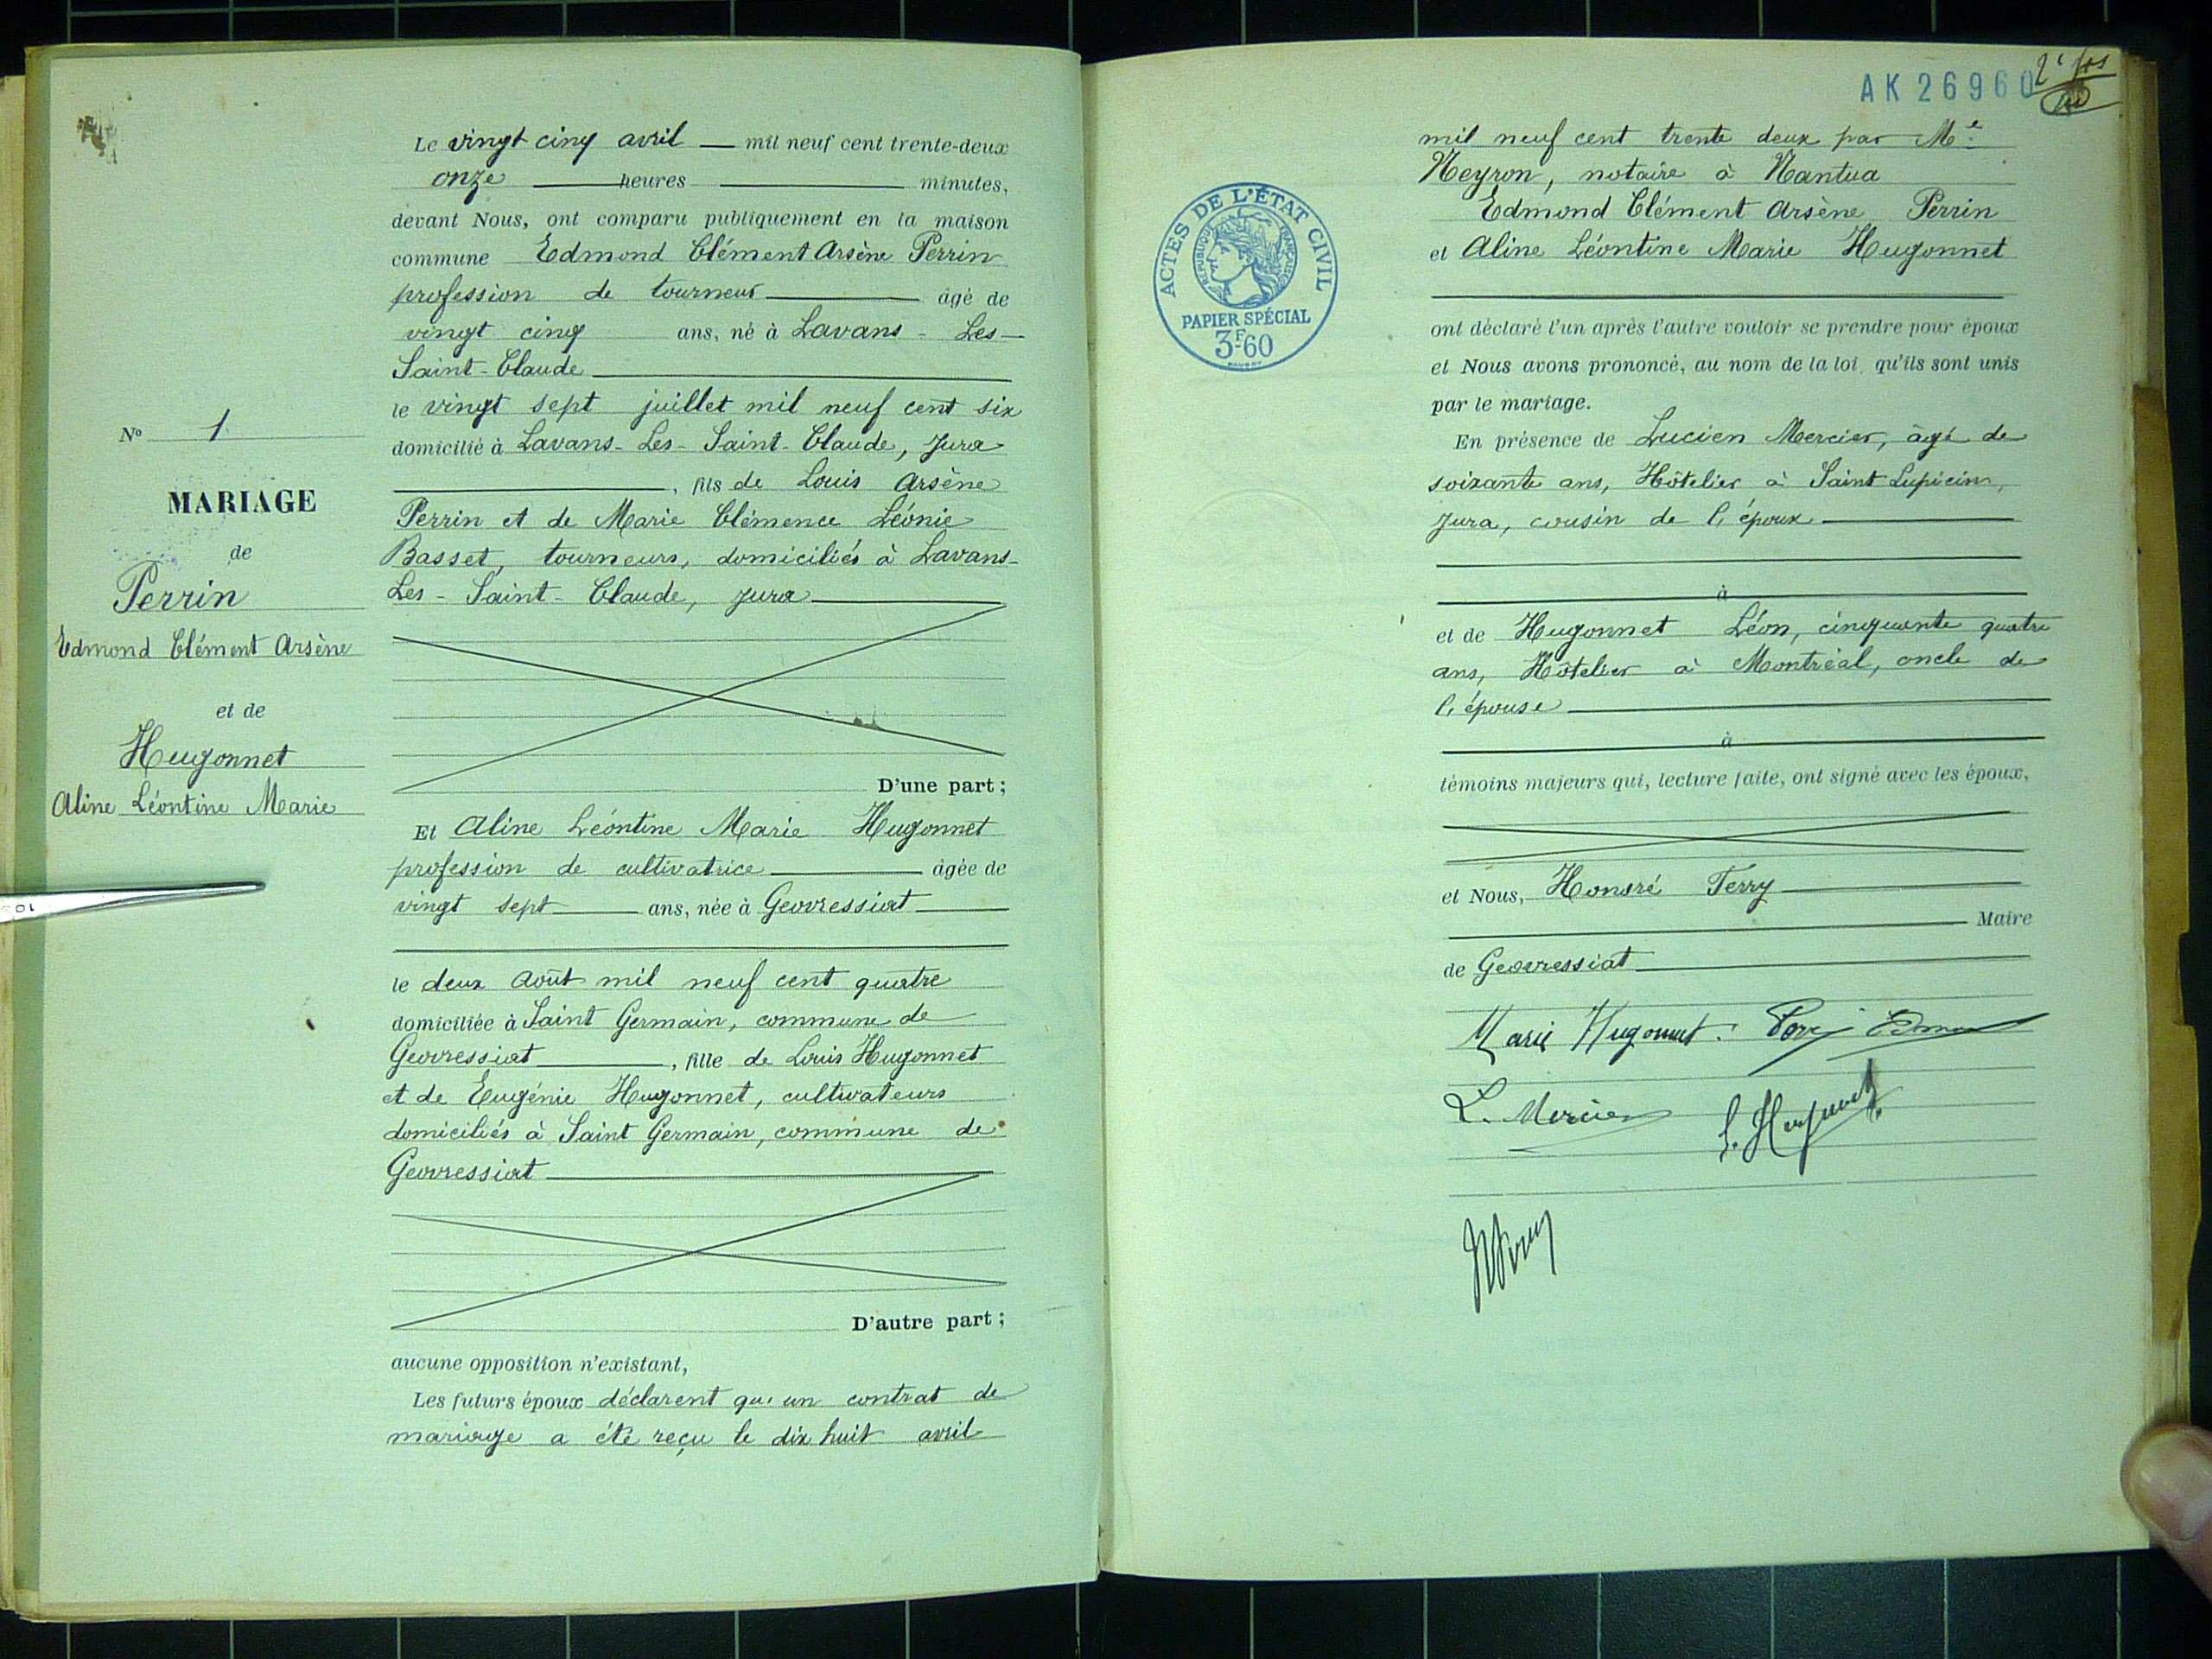 N° 1
MARIAGE
de
Perrin
Edmond Clément Arsène
et de
Hugonnet
Aline Léontine Marie
Le vingt cinq avril mil neuf cent trente-deux
onze heures minutes,
devant Nous, ont comparu publiquement en la maison
commune Edmond Clément Arsène Perrin
profession de tourneur âgé de
vingt cinq ans, né à Lavans-Les-
Saint-Claude
le vingt sept juillet mil neuf cent six
domicilié à Lavans-Les-Saint-Claude, Jura
, fils de Louis Arsène
Perrin et de Marie Clémence Léonie
Basset, tourneurs, domiciliés à Lavans-
Les-Saint-Claude, Jura
D'une part ;
Et Aline Léontine Marie Hugonnet
profession de cultivatrice âgée de
vingt sept ans, née à Geovressiat
le deux août mil neuf cent quatre
domiciliée à Saint Germain, commune de
Geovressiat, fille de Louis Hugonnet
et de Eugénie Hugonnet, cultivateurs
domiciliés à Saint Germain, commune de
Geovressiat
D'autre part ;
aucune opposition n'existant,
Les futurs époux déclarent qu'un contrat de
mariage a été reçu le dix huit avril
AK 26960
ACTES DE L'ÉTAT CIVIL
RÉPUBLIQUE FRANÇAISE
PAPIER SPÉCIAL
3F60
mil neuf cent trente deux par Me
Neyron, notaire à Nantua
Edmond Clément Arsène Perrin
et Aline Léontine Marie Hugonnet
ont déclaré l'un après l'autre vouloir se prendre pour époux
et Nous avons prononcé, au nom de la loi, qu'ils sont unis
par le mariage.
En présence de Lucien Mercier, âgé de
soixante ans, Hôtelier à Saint Lupicin,
Jura, cousin de l'époux
à
et de Hugonnet Léon, cinquante quatre
ans, Hôtelier à Montréal, oncle de
l'épouse
à
témoins majeurs qui, lecture faite, ont signé avec les époux,
et Nous, Honoré Ferry
Maire
de Geovressiat
Marie Hugonnet
L. Mercier
L. Hugonnet